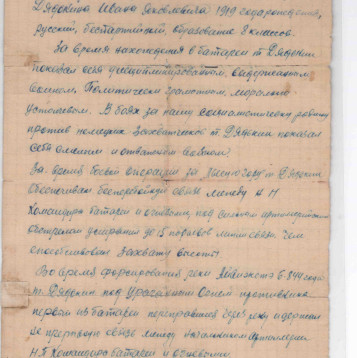 Дядюкина Ивана Яковлевича 1919 года рождения,
русский, беспартийный, образование 8 классов.
За время нахождения в батареи т. Дядюкин
показал себя дисциплинированным, выдержанным
бойцом. Политически грамотен, морально
устойчив. В боях за нашу социалистическую родину
против немецких захватчиков т. Дядюкин показал
себя смелым и отважным бойцом.
За время боевой операции за высоту т. Дядюкин
обеспечивал бесперебойную связь между Н.П.
Командира батареи и огневой, под сильным артиллерийским
обстрелом устранил до 15 порывов линии связи чем
способствовал захвату высоты.
Во время форсирования реки 6-8.44 года
т. Дядюкин под ураганным огнем противника
первым из батареи переправился через реку и держал
связь между начальником артиллерии
Н.П. Командира батареи и огневыми